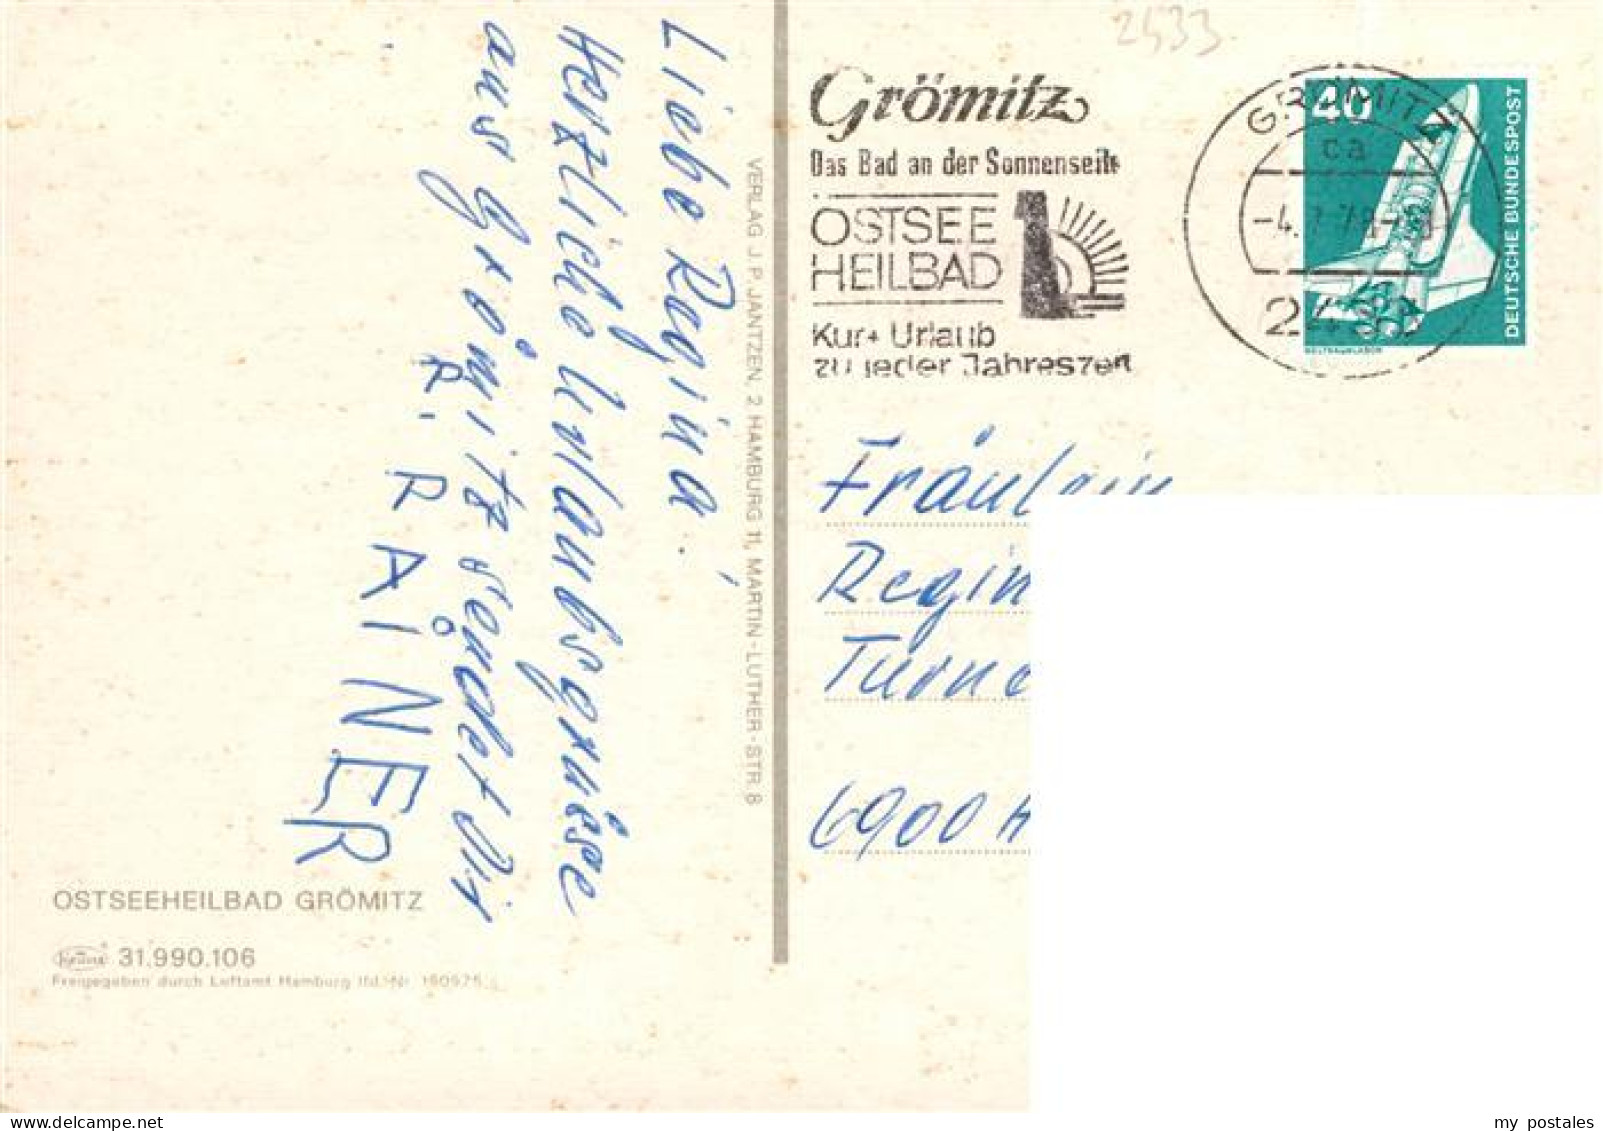 Liebe Regina!
Herzliche Urlaubsgrüsse
aus Grömitz sendet Dir
R. RAINER
VERLAG J. P. JANTZEN, 2 HAMBURG 11, MARTIN-LUTHER-STR. 8
OSTSEEHEILBAD GRÖMITZ
31.990.106
Freigegeben durch Luftamt Hamburg lfd.-Nr.
2433
Grömitz
Das Bad an der Sonnenseite
OSTSEE
HEILBAD
Kur + Urlaub
zu jeder Jahreszeit
GRÖMITZ
ca
40
DEUTSCHE BUNDESPOST
WELTRAUMLABOR
Fräulein
Regin
Turne
6900 H
my postales